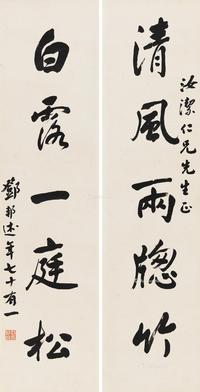 清風兩牕竹
汝潔仁兄先生正
白露一庭松
鄧邦述年七十有一